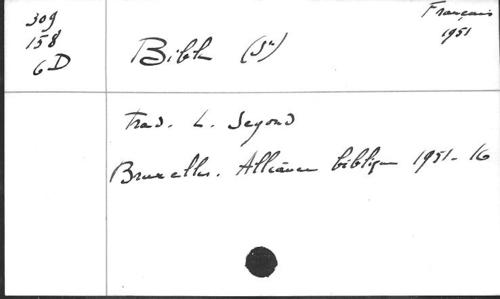 309
158
6D
Français
1951
Bible (Ste)
Trad. L. Segond
Bruxelles. Alliance biblique 1951 - 16